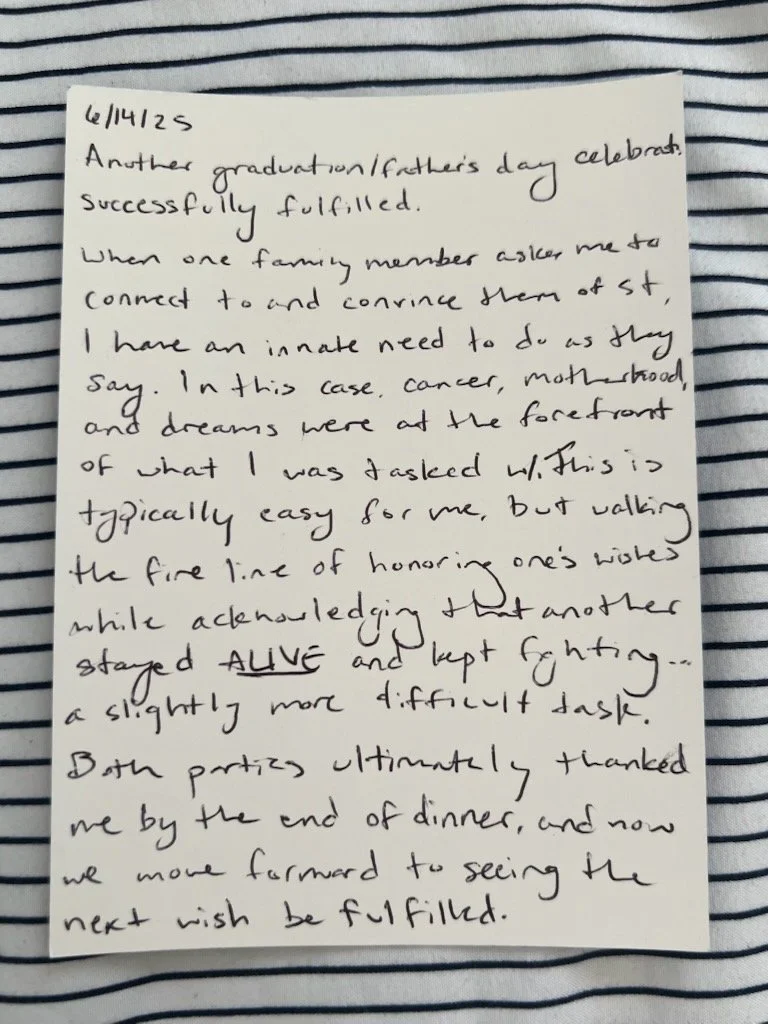 6/14/25
Another graduation/father's day celebrat.
successfully fulfilled.
When one family member asks me to
connect to and convince them of st,
I have an innate need to do as they
say. In this case, cancer, motherhood,
and dreams were at the forefront
of what I was tasked w/. This is
typically easy for me, but walking
the fine line of honoring one's wishes
while acknowledging that another
stayed ALIVE and kept fighting...
a slightly more difficult task.
Both parties ultimately thanked
me by the end of dinner, and now
we move forward to seeing the
next wish be fulfilled.